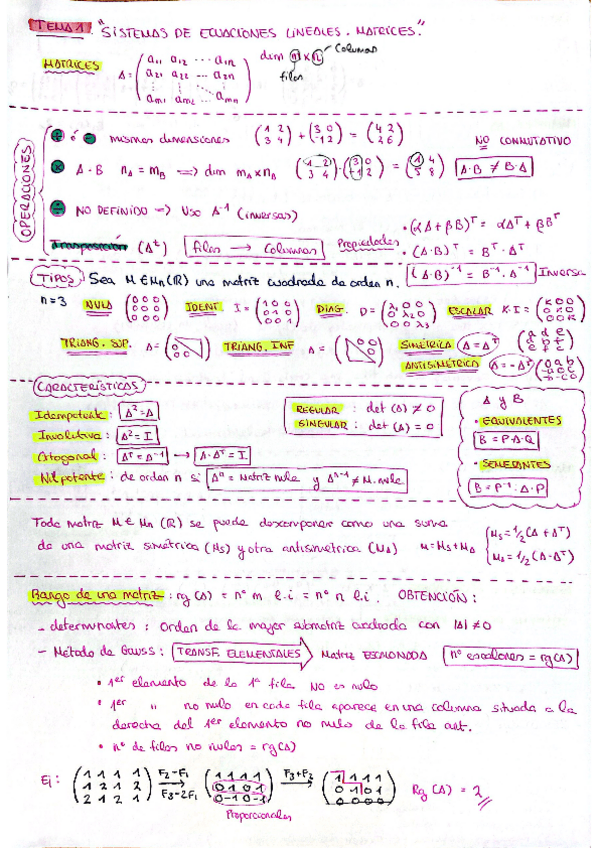 TEMA 1. "SISTEMAS DE ECUACIONES LINEALES. MATRICES."
MATRICES A = ( a11 a12 ... a1n / a21 a22 ... a2n / am1 am2 ... amn ) dim m x n columnas
filas
OPERACIONES
+ ó - mismas dimensiones (1 2 / 3 4) + (3 0 / -1 2) = (4 2 / 2 6) NO CONMUTATIVO
x A·B nA = mB => dim mA x nB (1 2 / 3 4)·(3 0 / -1 2) = (1 4 / 5 8) A·B ≠ B·A
÷ NO DEFINIDO => USO A⁻¹ (inversas)
Trasposición (Aᵗ) filas → columnas Propiedades
• (αA + βB)ᵀ = αAᵀ + βBᵀ
• (A·B)ᵀ = Bᵀ·Aᵀ
(A·B)⁻¹ = B⁻¹·A⁻¹ Inversa
TIPOS: Sea M ∈ Mn(R) una matriz cuadrada de orden n.
n=3 NULA (0 0 0 / 0 0 0 / 0 0 0) IDENT. I = (1 0 0 / 0 1 0 / 0 0 1) DIAG. D = (λ1 0 0 / 0 λ2 0 / 0 0 λ3) ESCALAR K·I = (K 0 0 / 0 K 0 / 0 0 K)
TRIANG. SUP. A = (0 / 0 0) TRIANG. INF A = (0 0 / 0) SIMÉTRICA A = Aᵀ
ANTISIMÉTRICA A = -Aᵀ
CARACTERÍSTICAS
Idempotente: A² = A
Involutiva: A² = I
Ortogonal: Aᵀ = A⁻¹ → A·Aᵀ = I
Nilpotente: de orden n si Aⁿ = Matriz nula y Aⁿ⁻¹ ≠ M. nula
REGULAR : det (A) ≠ 0
SINGULAR : det (A) = 0
A y B
• EQUIVALENTES
B = P·A·Q
• SEMEJANTES
B = P⁻¹·A·P
Toda matriz M ∈ Mn (R) se puede descomponer como una suma
de una matriz simétrica (Ms) y otra antisimétrica (MA) M = Ms + MA
Ms = 1/2 (A + Aᵀ)
MA = 1/2 (A - Aᵀ)
Rango de una matriz: rg (A) = nº m l.i = nº n l.i. OBTENCIÓN:
- determinantes : Orden de la mayor submatriz cuadrada con |A| ≠ 0
- Método de Gauss: TRANSF. ELEMENTALES MATRIZ ESCALONADA nº escalones = rg(A)
• 1er elemento de la 1ª fila NO es nulo
• 1er " no nulo en cada fila aparece en una columna situada a la
derecha del 1er elemento no nulo de la fila ant.
• nº de filas no nulas = rg(A)
Ej: (1 1 1 1 / 1 2 1 2 / 2 1 2 1) F2-F1 F3-2F1 (1 1 1 1 / 0 1 0 1 / 0 -1 0 -1) F3+F2 (1 1 1 1 / 0 1 0 1 / 0 0 0 0) Rg (A) = 2
Proporcionales